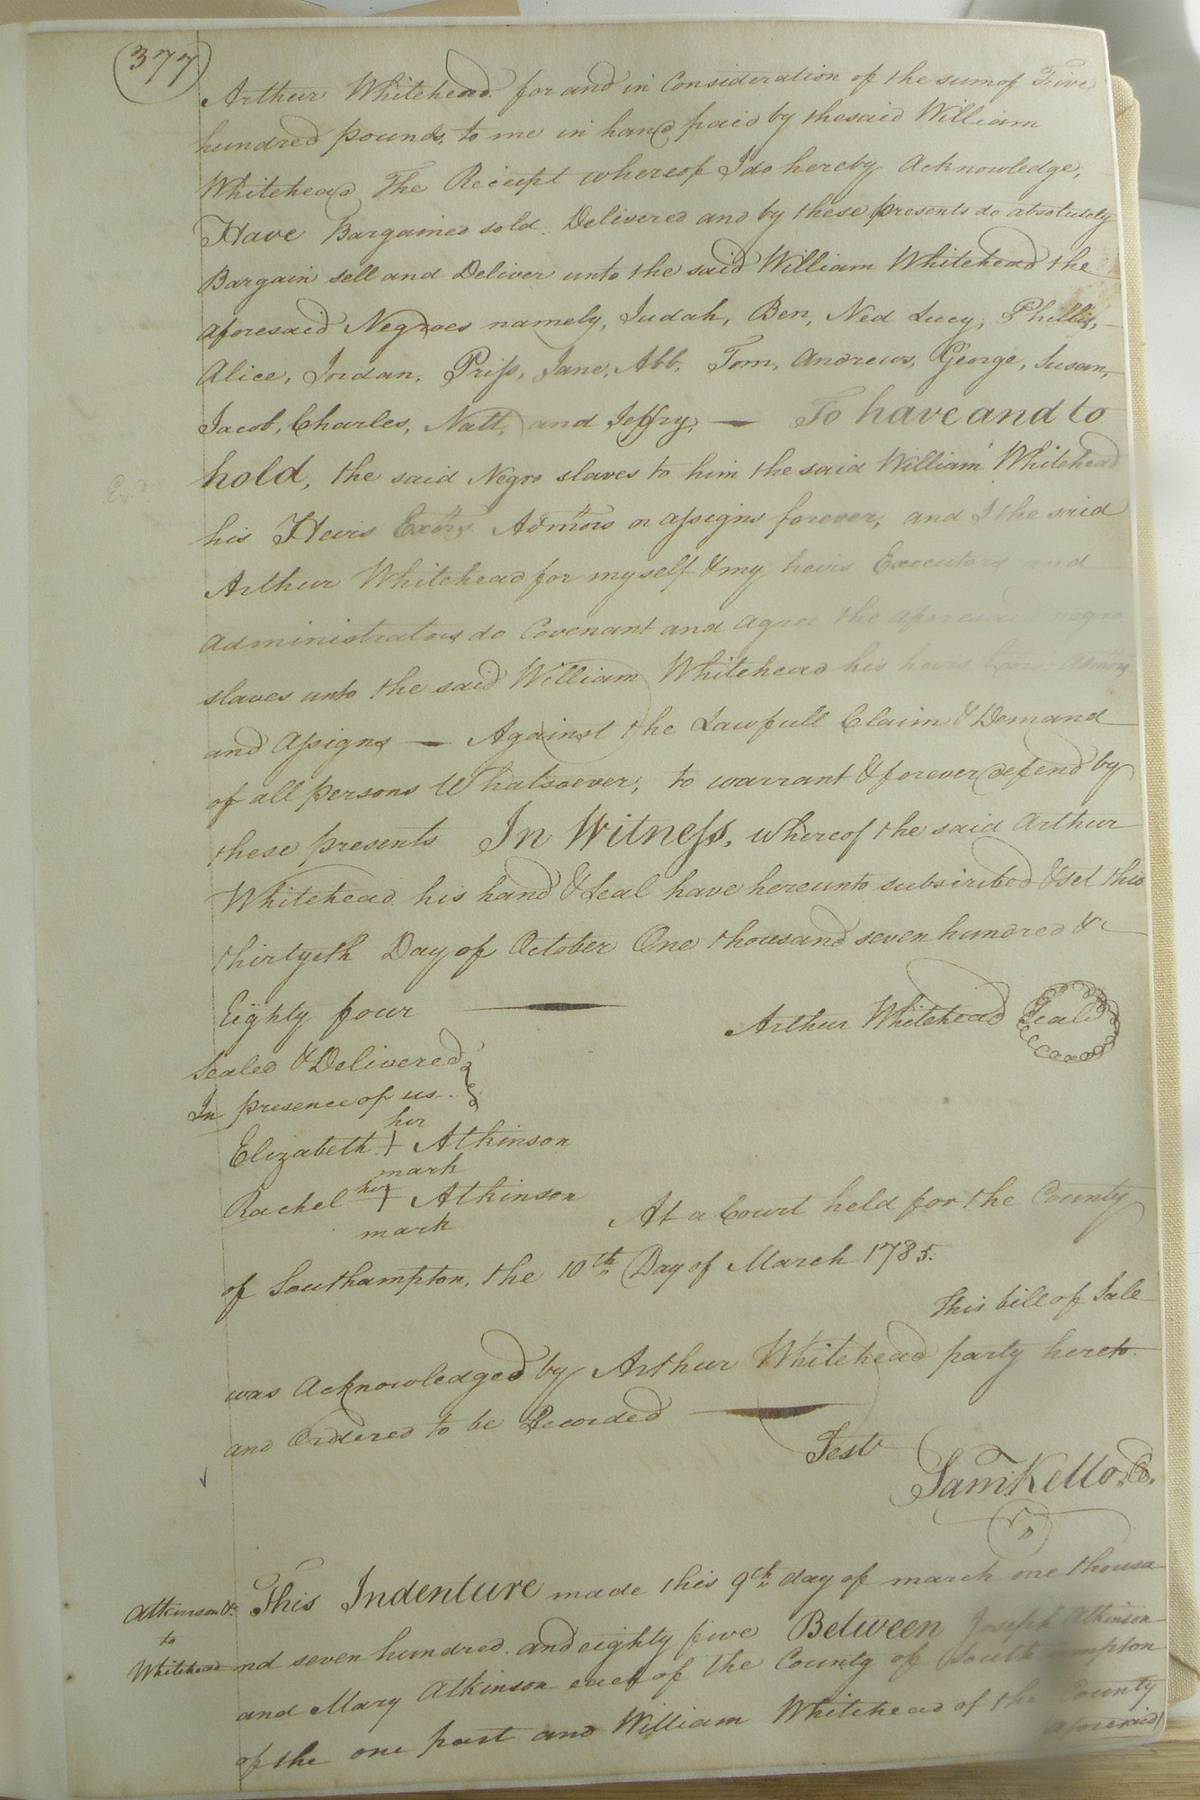 377
Arthur Whitehead for and in Consideration of the sum of Five
hundred pounds, to me in hand paid by the said William
Whitehead The Receipt whereof I do hereby Acknowledge,
Have Bargained sold. Delivered and by these presents do absolutely
Bargain sell and Deliver unto the said William Whitehead the
aforesaid Negroes namely, Judah, Ben, Ned Lucy, Phillis,
Alice, Jordan, Priss, Jane, Abb, Tom, Andrews, George, Susan,
Jacob, Charles, Natt, and Jeffry, — To have and to
hold, the said Negro slaves to him the said William Whitehead
his Heirs Exors Admors or assigns forever, and I the said
Arthur Whitehead for myself & my heirs Executors and
Administrators do Covenant and agree the aforesaid negro
slaves unto the said William Whitehead his heirs Admors
and Assigns — Against the Lawfull Claim & Demand
of all persons Whatsoever, to warrant & forever defend by
these presents In Witness, whereof the said Arthur
Whitehead his hand & Seal have hereunto subscribed & set this
thirtyeth Day of October One thousand seven hundred &
Eighty four
Arthur Whitehead Seal
Sealed & Delivered
In presence of us
her
Elizabeth + Atkinson
mark
her
Rachel + Atkinson
mark
At a Court held for the County
of Southampton, the 10th Day of March 1785.
This bill of Sale
was Acknowledged by Arthur Whitehead party hereto
and Ordered to be Recorded
Test
Saml Kello, C.
Atkinson &c
to
Whitehead
This Indenture made this 9th day of march one thousa
nd seven hundred. and eighty five Between Joseph Atkinson
and Mary Atkinson each of the County of Southampton
of the one part and William Whitehead of the County
aforesaid